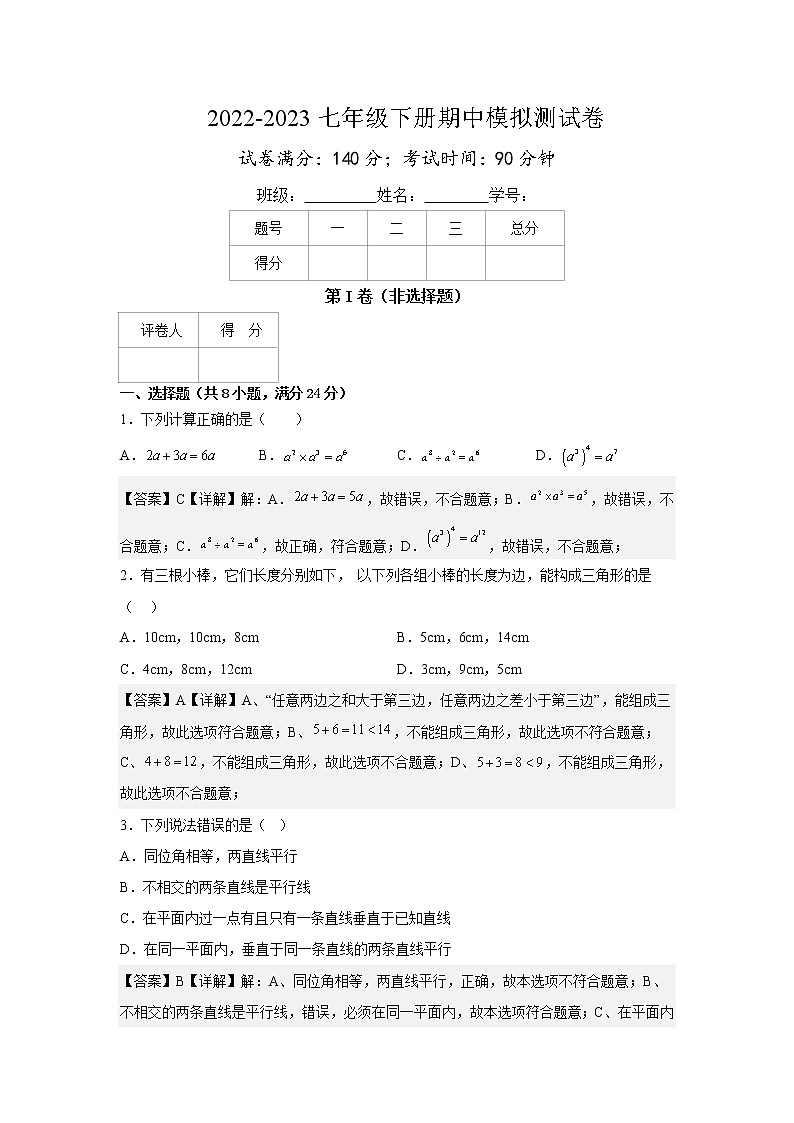 2022-2023 七年级下册期中模拟测试卷
试卷满分：140 分；考试时间：90 分钟
班级：_________姓名：________学号：
题号 一 二 三 总分
得分
第 I 卷（非选择题）
评卷人 得 分
一、选择题（共 8 小题，满分 24 分）
1．下列计算正确的是（  ）
A．2a+3a=6a B．a²×a³=a⁶ C．a⁸÷a²=a⁶ D．(a³)⁴=a⁷
【答案】C【详解】解：A．2a+3a=5a，故错误，不合题意；B．a²×a³=a⁵，故错误，不
合题意；C．a⁸÷a²=a⁶，故正确，符合题意；D．(a³)⁴=a¹²，故错误，不合题意；
2．有三根小棒，它们长度分别如下， 以下列各组小棒的长度为边，能构成三角形的是
（ ）
A．10cm，10cm，8cm B．5cm，6cm，14cm
C．4cm，8cm，12cm D．3cm，9cm，5cm
【答案】A【详解】A、“任意两边之和大于第三边，任意两边之差小于第三边”，能组成三
角形，故此选项符合题意；B、5+6=11<14，不能组成三角形，故此选项不符合题意；
C、4+8=12，不能组成三角形，故此选项不合题意；D、5+3=8<9，不能组成三角形，
故此选项不合题意；
3．下列说法错误的是（ ）
A．同位角相等，两直线平行
B．不相交的两条直线是平行线
C．在平面内过一点有且只有一条直线垂直于已知直线
D．在同一平面内，垂直于同一条直线的两条直线平行
【答案】B【详解】解：A、同位角相等，两直线平行，正确，故本选项不符合题意；B、
不相交的两条直线是平行线，错误，必须在同一平面内，故本选项符合题意；C、在平面内